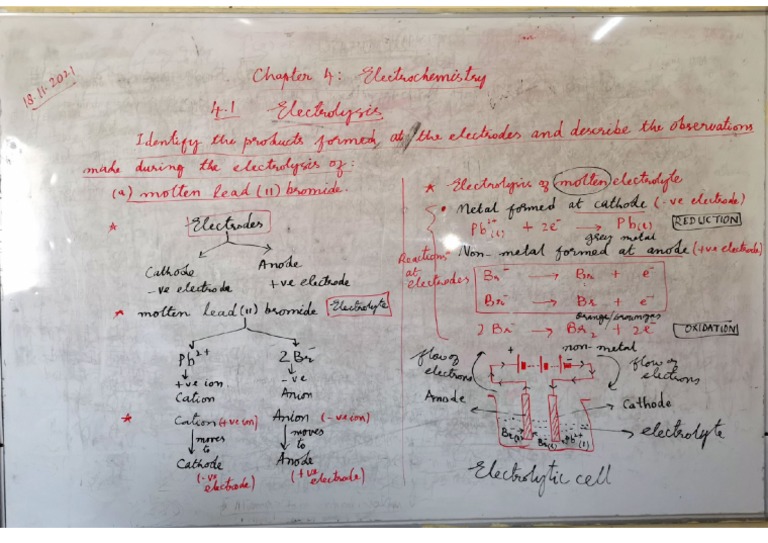 18.11.2021
Chapter 4: Electrochemistry
4.1 Electrolysis
Identify the products formed at the electrodes and describe the observations
made during the electrolysis of:
(a) molten lead (II) bromide.
* Electrodes
Cathode
-ve electrode
Anode
+ve electrode
* molten lead (II) bromide Electrolyte
Pb²⁺
+ve ion
Cation
2Br⁻
-ve
Anion
* Cation (+ve ion)
moves
to
Cathode
(-ve
electrode)
Anion (-ve ion)
moves
to
Anode
(+ve
electrode)
* Electrolysis of molten electrolyte
Reactions
at
electrodes
• Metal formed at cathode (-ve electrode)
Pb²⁺(l) + 2e⁻ → Pb(l) REDUCTION
grey metal
• Non-metal formed at anode (+ve electrode)
Br⁻ → Br + e⁻
Br⁻ → Br + e⁻
2Br⁻ → Br₂ + 2e⁻ OXIDATION
non-metal
flow of
electrons
+ -
flow of
electrons
Anode
Cathode
Pb²⁺(l)
electrolyte
Electrolytic cell